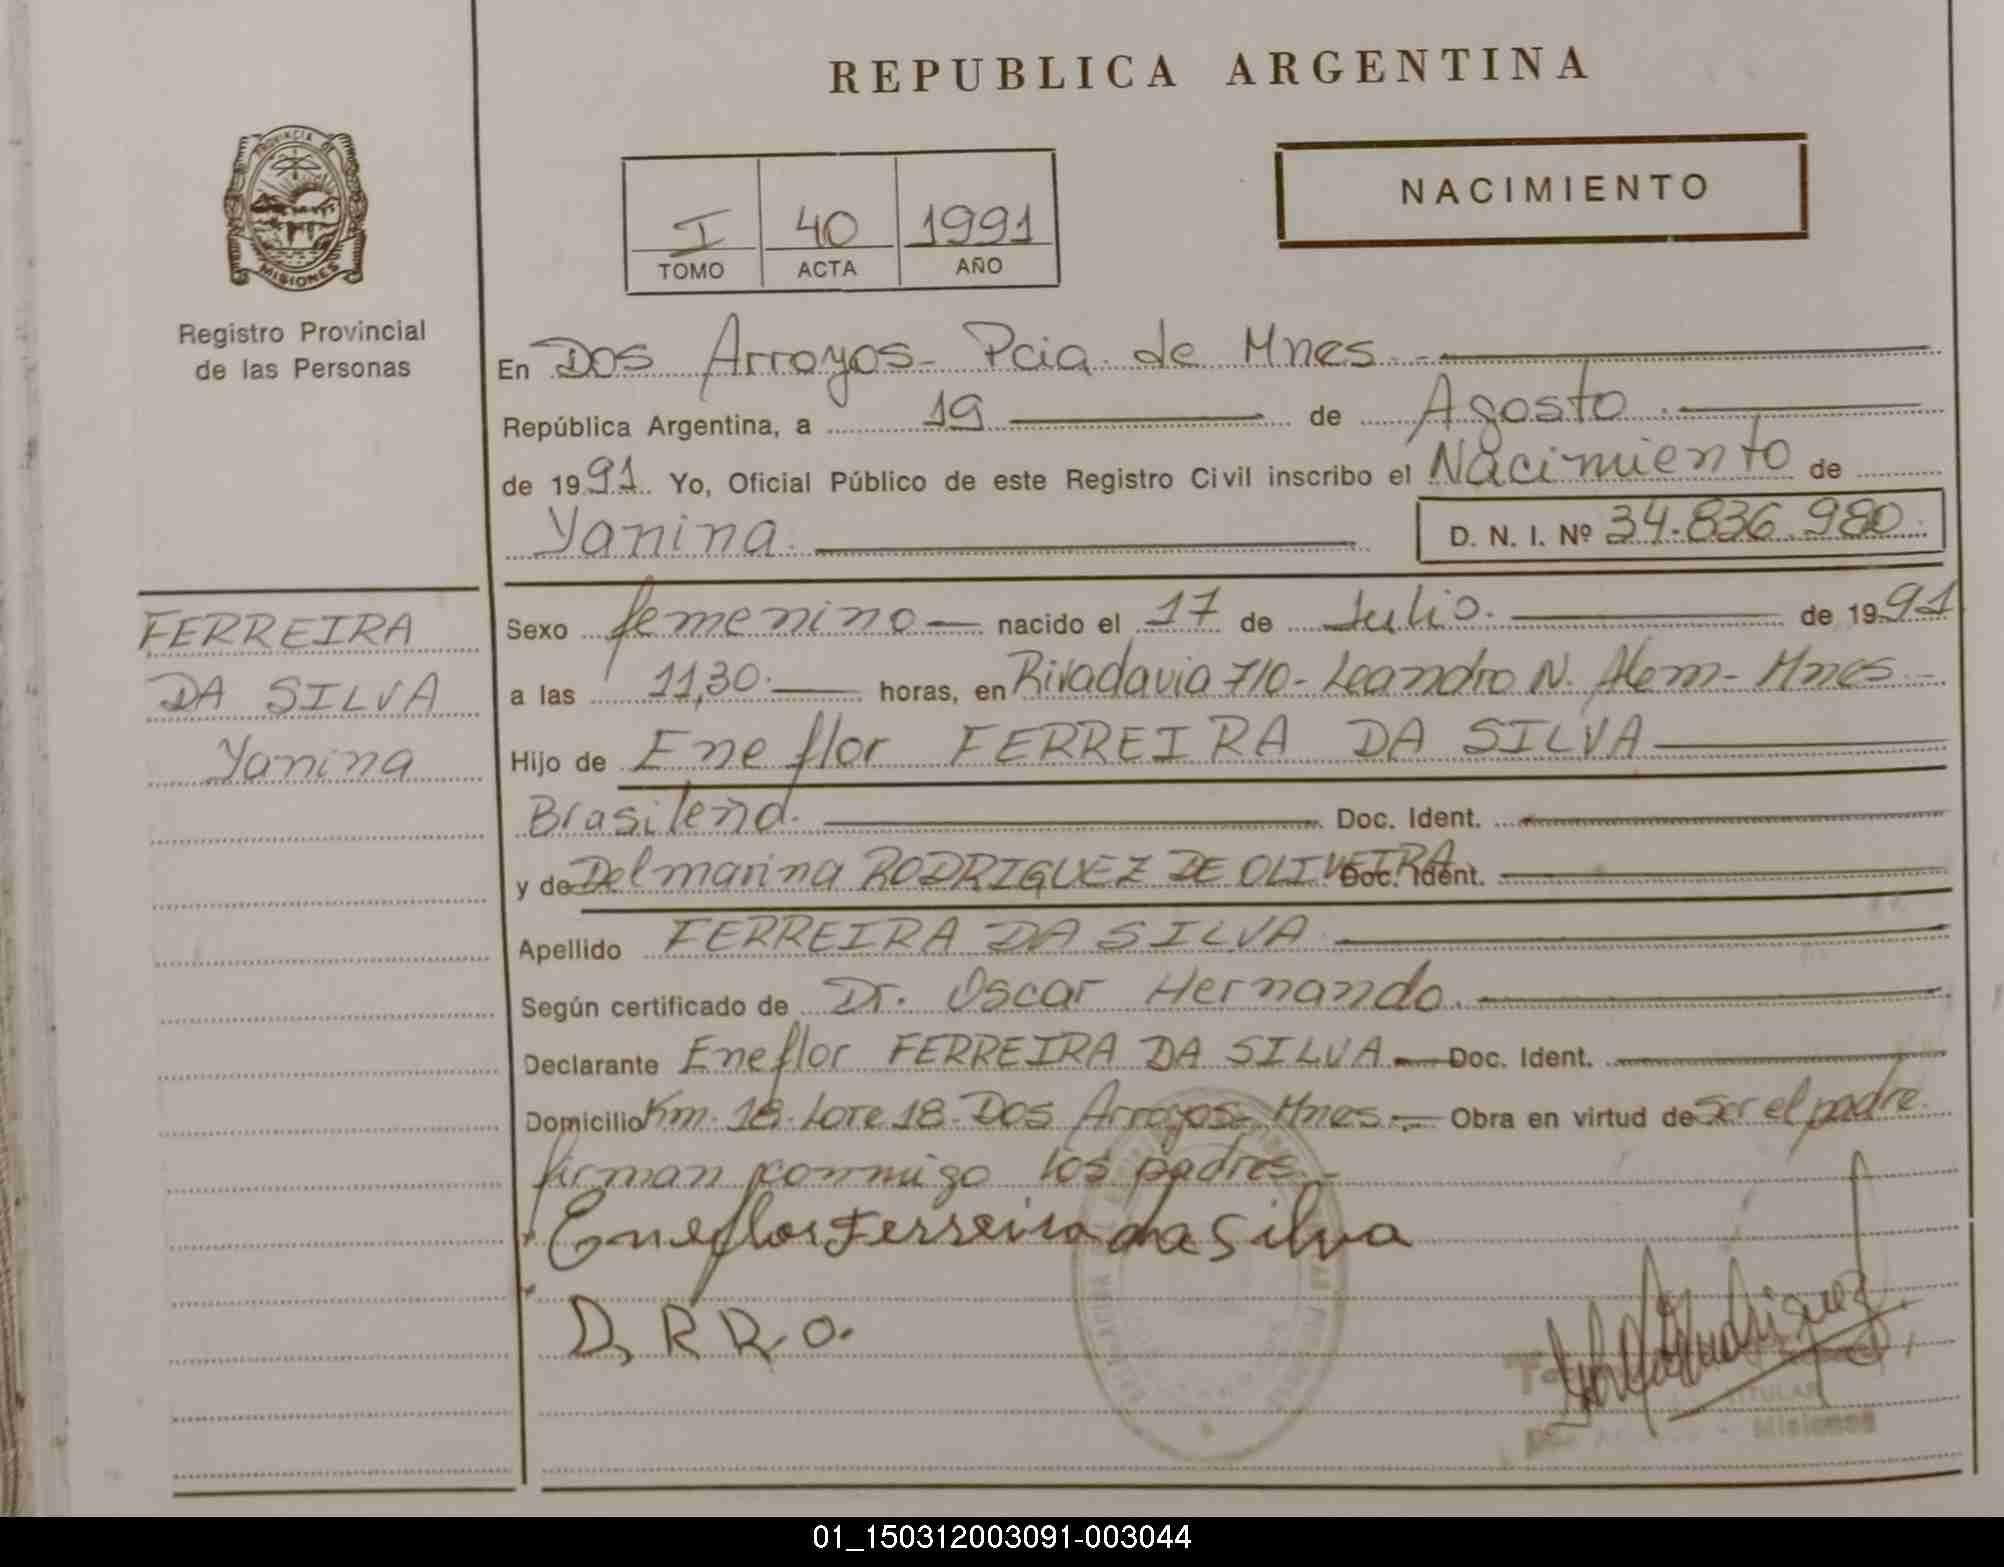 REPUBLICA ARGENTINA
NACIMIENTO
I 40 1991
TOMO ACTA AÑO
PROVINCIA DE
MISIONES
Registro Provincial
de las Personas
En Dos Arroyos - Pcia. de Mnes.-
República Argentina, a 19 de Agosto.
de 1991. Yo, Oficial Público de este Registro Civil inscribo el Nacimiento de
Yanina. D. N. I. Nº 34.836.980.
FERREIRA
DA SILVA
Yanina
Sexo femenino nacido el 17 de Julio. de 1991
a las 11,30. horas, en Rivadavia 710- Leandro N. Alem- Mnes.-
Hijo de Eneflor FERREIRA DA SILVA
Brasileña. Doc. Ident.
y de Delmarina RODRIGUEZ DE OLIVEIRA Doc. Ident.
Apellido FERREIRA DA SILVA.
Según certificado de Dr. Oscar Hernando.
Declarante Eneflor FERREIRA DA SILVA. Doc. Ident.
Domicilio Km. 18. Lote 18- Dos Arroyos- Mnes.- Obra en virtud de Ser el padre.
firman conmigo los padres.-
Eneflor Ferreira da Silva
D. R R. O.
TITULAR
Misiones
01_150312003091-003044